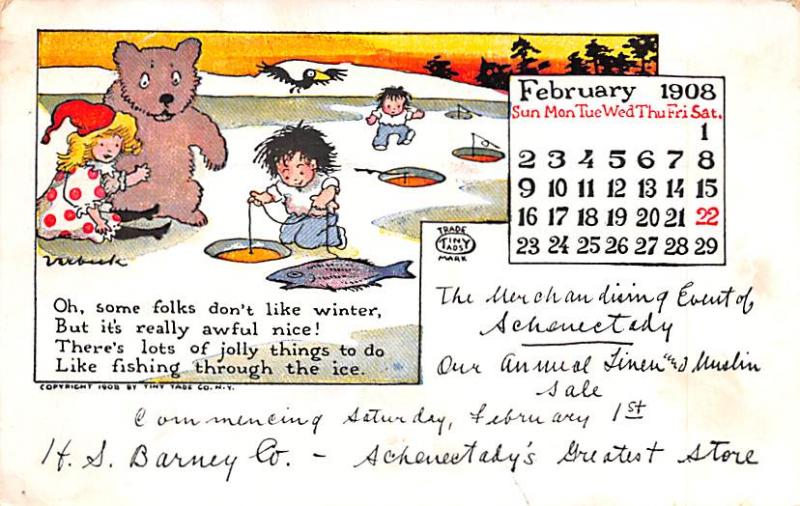 February 1908
Sun Mon Tue Wed Thu Fri Sat.
1
2 3 4 5 6 7 8
9 10 11 12 13 14 15
16 17 18 19 20 21 22
23 24 25 26 27 28 29
Verbeek
TRADE
TINY
TADS
MARK
Oh, some folks don't like winter,
But it's really awful nice!
There's lots of jolly things to do
Like fishing through the ice.
COPYRIGHT 1908 BY TINY TADS CO. N.Y.
The Merchandising Event of
Schenectady
Our Annual Linen and Muslin
Sale
Commencing Saturday, February 1st
H. S. Barney Co. - Schenectady's Greatest Store